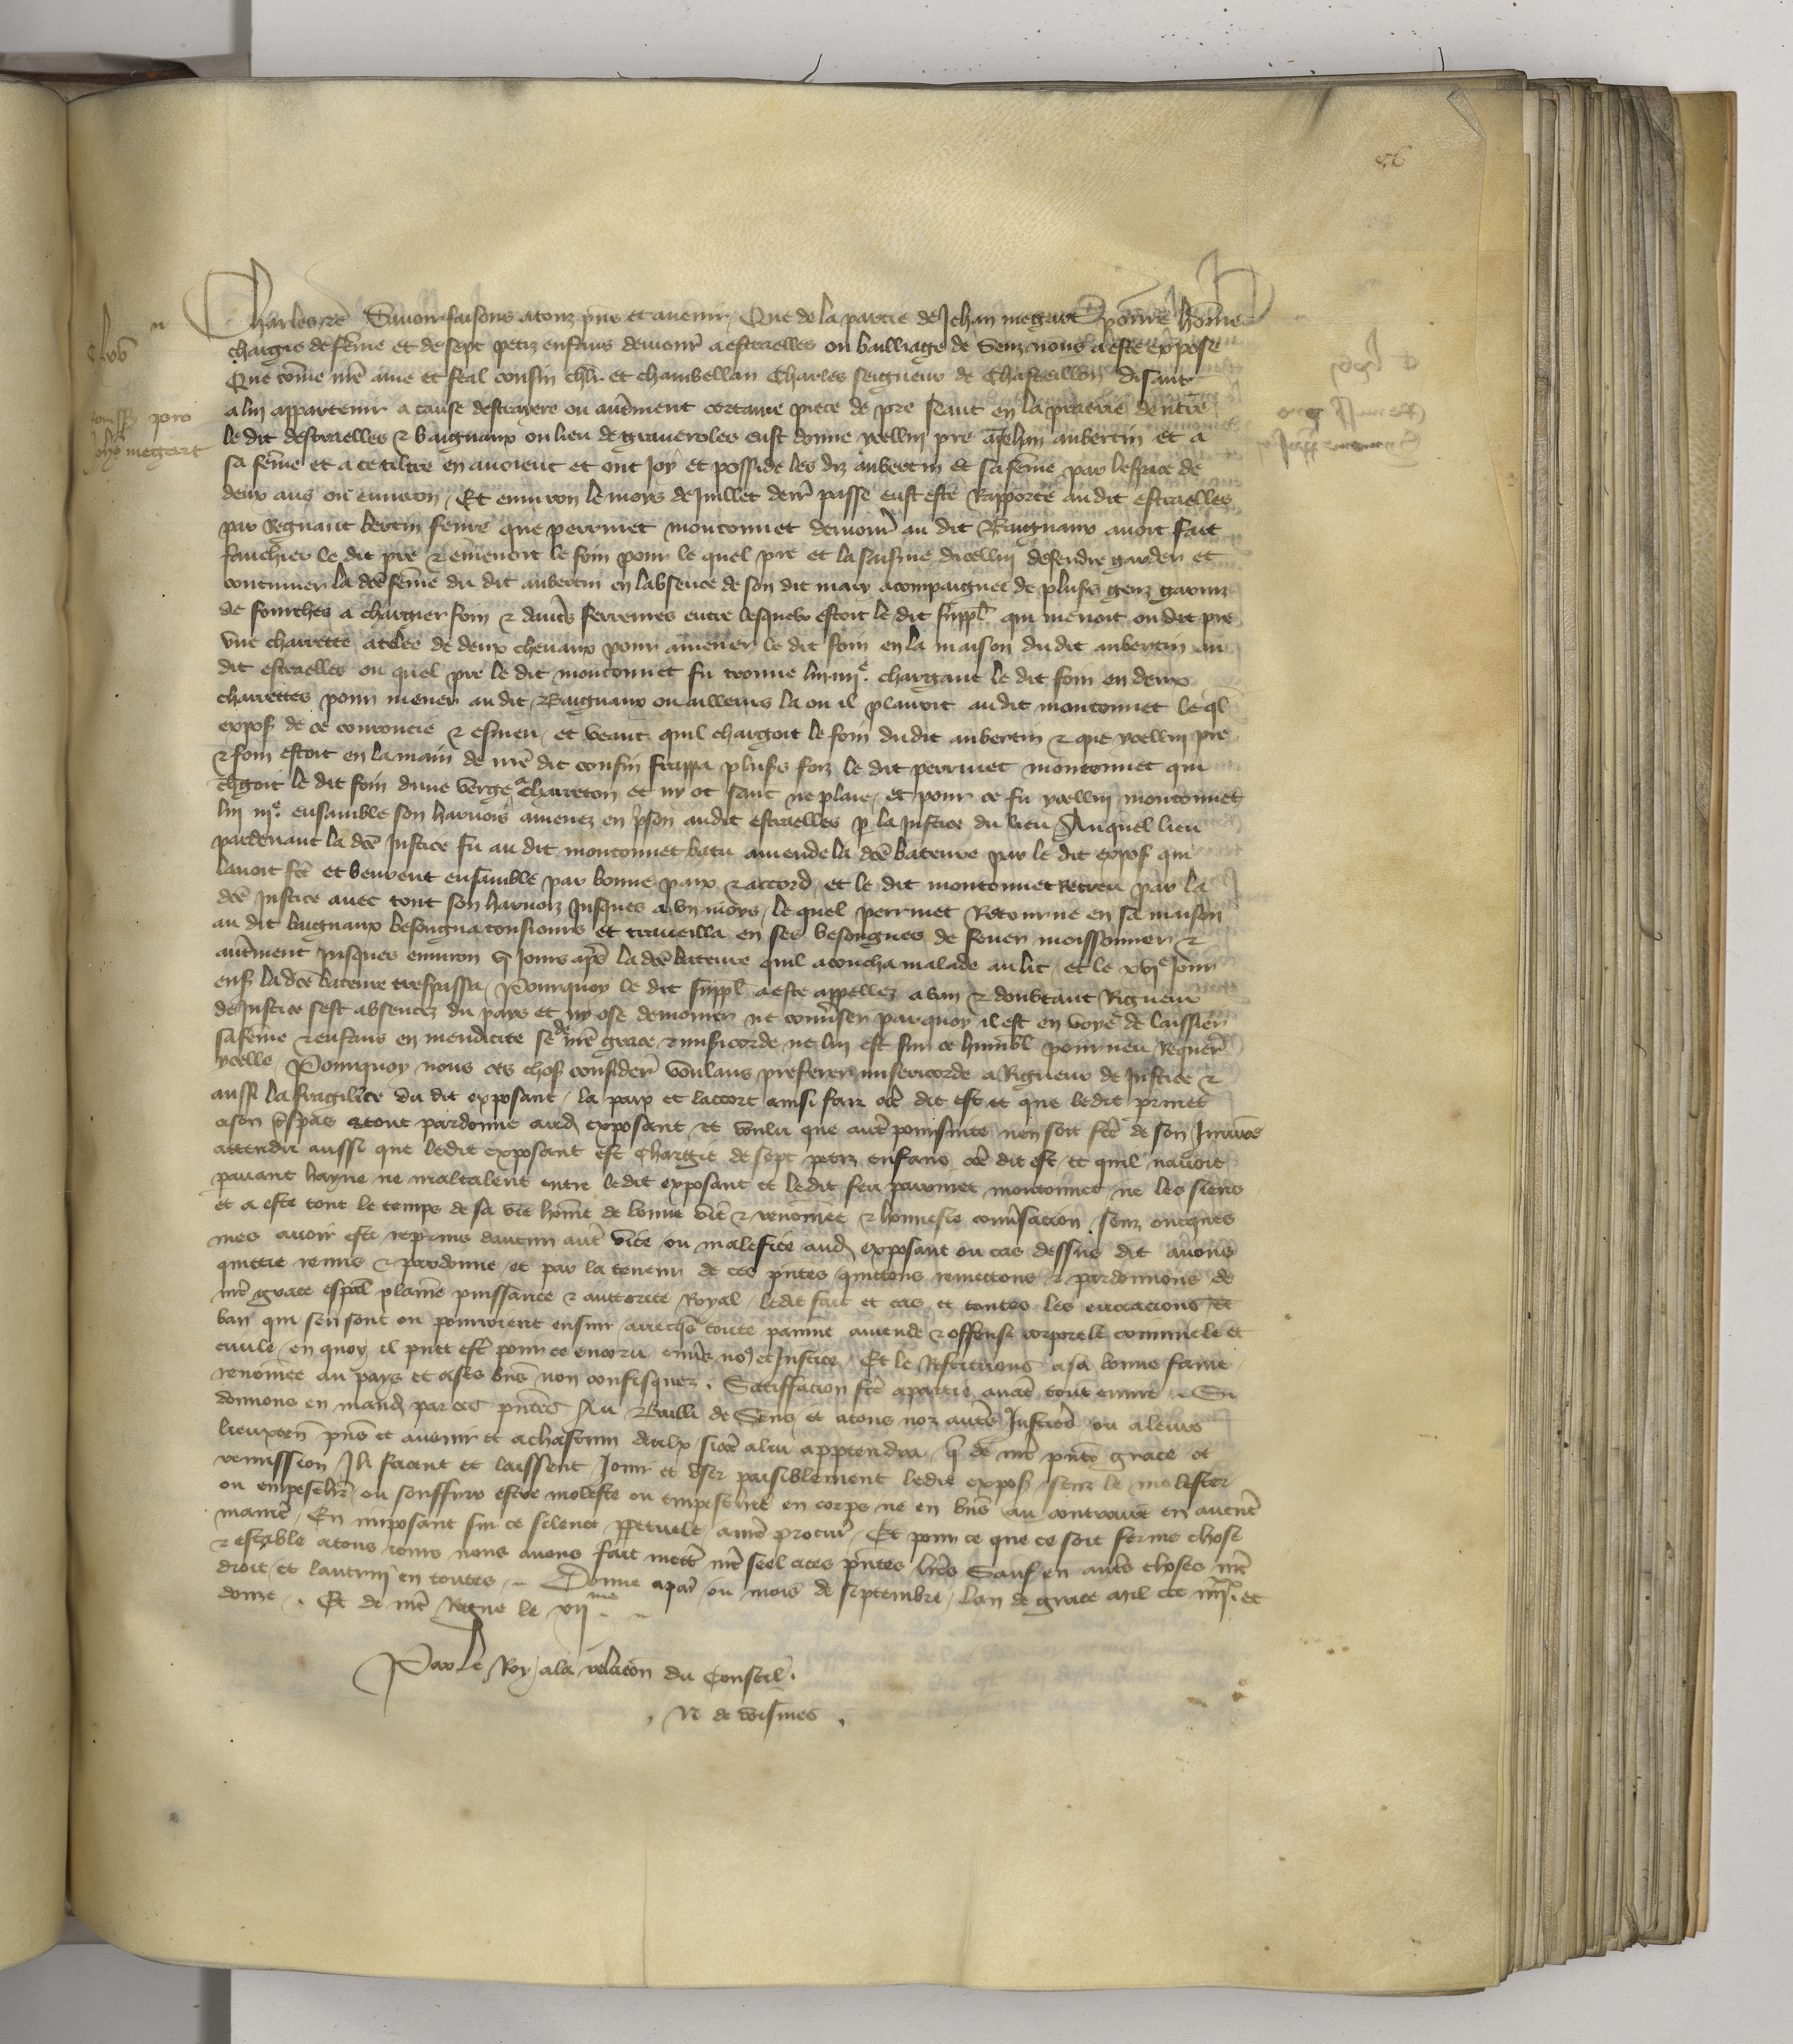 86
Charles etc Savoir faisons a touz pñs et avenir Que de la partie de Jehan megart povre hom̃e
chargie de fem̃e et de sept petiz enfans demour̃ a estraelles ou bailliage de Senz nous a este expose
Que com̃e nr̃e ame et feal cousin chlr̃ et chambellan Charles seigneur de Chasteillon disant
a lui appartenir a cause destrayere ou autrem̃ent certaine piece de pre seant en la praerie dentre
le dit destraelles & Baignaux ou lieu de graveroles eust donne ycellui pre a Jehan aubertin et a
sa fem̃e et a ce tiltre en avoient et ont Joy et posside les diz aubertin et sa fem̃e par lespace de
deux ans ou environ / Et environ le moys de Juillet derr̃ passe eust este Rapporte au dit estraelles
par Regnaut bertin fevre que perrinet montonnet demour̃ au dit Baignaux avoit fait
fauchier le dit pre & em̃enoit le foin pour le quel pre et la saisine dicellui defendre garder et
continuer la dc̃e fem̃e du dit aubertin en labsence de son dit mary acompaignee de plus̃s genz garniz
de fourches a chargier foin & daut̃s ferremes entre lesquelx estoit le dit suppl̃ qui menoit ou dit pre
une charrette atelee de deux chevaux pour amener le dit foin en la maison du dit aubertin au
dit estraelles ou quel pre le dit montonnet fu trouve lui iiiᵉ. chargant le dit foin en deux
charrettes pour mener au dit Baignaux ou ailleurs la ou il plairoit audit montonnet le ql̃
expos̃ de ce courroucie & esmeu / et veant quil chargoit le foin dudit aubertin & que ycellui pre
& foin estoit en la main de nr̃e dit cousin frappa plus̃s foiz le dit perrinet montonnet qui
ch̃goit le dit foin dune verge a charreton et ny ot sanc ne plaie / et pour ce fu ycellui montonnet
lui iiiᵉ. ensamble son harnois amenez en p̃son audit estraelles p̃ la Justice du lieu / Auquel lieu
pardevant la dc̃e Justice fu au dit montonnet batu amende la dc̃e bateure par le dit expos̃ qui
lavoit fc̃e et beurent ensamble par bonne paix & accord / et le dit montonnet recreu par la
dc̃e Justice avec tout son harnoiz Jusques a un moys / le quel perrinet Retourne en sa maison
au dit baignaux besongna tousiours et traveilla en ses besongnes de fener moissonner &
autrem̃ent Jusques environ Jours apr̃s la dc̃e bateure quil acoucha malade au lit / et le xviᵉ Jour
ens̃ la dc̃e bateure trespassa / Pourquoy le dit suppl̃ a este appellez a ban & doubtant Rigueur
de Justice sest absentez du pays et ny ose demourer ne conṽser par quoy il est en voye de laissier
sa fem̃e & enfans en mendicite se de nr̃e grace & mis̃icorde ne lui est sur ce humbl̃ pourveu Requer̃
ycelle / Pourquoy nous ces chos̃ consider̃ voulans preferer misericorde a Rigueur de Justice &
aussi la fragilite du dit exposant / la paix et laccort ainsi fait cõe dit est et que ledit prinet
a son t̃spas a tout pardonne aud̃ exposant et voulu que aut̃e poursuite nen soit fc̃e de son
attendu aussi que ledit exposant est Chargie de sept petiz enfans cõe dit est / et quil navoit
pavant hayne ne maltalent entre ledit exposant et ledit feu perrinet montonnet ne les siens
et a este tout le temps de sa vie hom̃e de bonne vie & renom̃ee & honneste conṽsacion senz oncques
mes avoir este reprins daucun aut̃e vice ou malefice aud̃ exposant ou cas dessus dit avons
quittie remis & pardonne / et par la teneur de ces p̃ntes quittons remettons & pardonnons de
nr̃e grace esp̃al plaine puissance & auttorite Royal ledit fait et cas et toutes les evocacions et
ban qui sen sont ou pourroient ensuir avecques toute painne amende & offense corporele criminele et
civile / en quoy il puet estr̃ pour ce encoru enṽs no9 et Justice / Et le restituons a sa bonne fame
renom̃ee au pays et a ses biñs non confisquez . Satiffacion fc̃e a partie avant tout euvre .. Si
donnons en mand̃ par ces p̃ntes Au Bailli de Sens et a tous noz autr̃s Justic̃s ou a leurs
lieuxten̄ pñs et avenir et a chascun deulx si cõe a lui appartendra / q̃ de nr̃e p̃nte grace et
remission Ilz facent et laissent Jouir et user paisiblement ledit expos̃ senz le molester
ou empeschr̃ ou souffrir estre moleste ou empeschie en corps ne en biñs au contraire en aucune
manier̃ / En imposant sur ce silence p̃petuele a nr̃e procur̃ / Et pour ce que ce soit ferme chose
& estable a tous iours nous avons fait mettr̃ nr̃e seel a ces p̃ntes lr̃es Sauf en aut̃s choses nr̃e
droit et lautruy en toutes .. Donne a par̃ ou mois de septembre / lan de grace mil ccc iiiixx. et
douze . Et de nr̃e Regne le xiiᵐᵉ ..
Par le Roy / a la relacõn du Conseil .
. N de voismes .
n
jehan megart